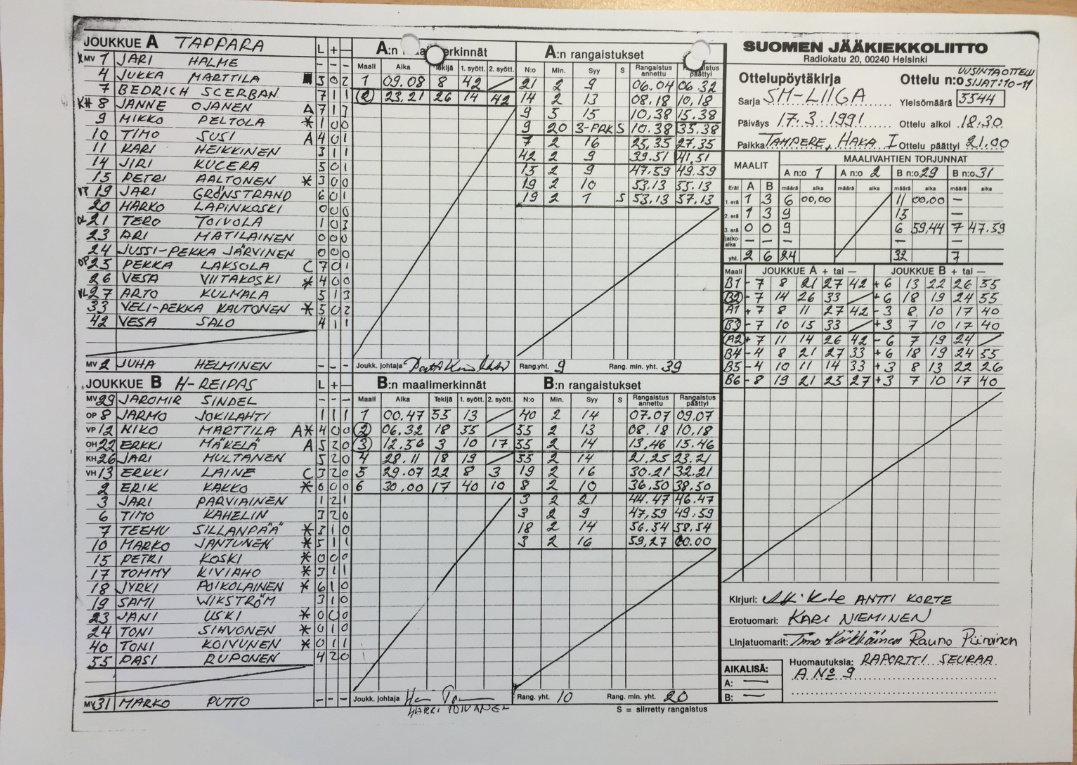 JOUKKUE A TAPPARA L + —
MV 1 JARI HALME – – –
4 JUKKA MARTTILA 5 0 2
7 BEDRICH SCERBAN 7 1 1
KH 8 JANNE OJANEN A 7 1 3
9 MIKKO PELTOLA * 1 0 0
10 TIMO SUSI A 4 0 1
11 KARI HEIKKINEN 3 1 1
14 JIRI KUCERA 5 0 1
15 PETRI AALTONEN * 3 0 0
VP 19 JARI GRÖNSTRAND 6 0 1
20 MARKO LAPINKOSKI 0 0 0
OL 21 TERO TOIVOLA 1 0 3
23 ARI MATILAINEN 0 0 0
24 JUSSI-PEKKA JÄRVINEN 0 0 0
OP 25 PEKKA LAKSOLA C 7 0 1
26 VESA VIITAKOSKI * 4 0 0
VL 27 ARTO KULMALA 5 1 3
33 VELI-PEKKA KAUTONEN * 5 0 2
42 VESA SALO 4 1 1
MV 2 JUHA HELMINEN – – –
A:n maalimerkinnät
Maali Aika Tekijä 1. syött. 2. syött.
1 09.08 8 42
2 23.21 26 14 42
Joukk. johtaja
A:n rangaistukset
N:o Min. Syy S Rangaistus annettu Rangaistus päättyi
21 2 9 06.04 06.32
14 2 13 08.18 10.18
9 5 15 10.38 15.38
9 20 3-PRK S 10.38 35.38
7 2 16 25.35 27.35
42 2 9 39.51 41.51
15 2 9 47.59 49.59
19 2 10 53.13 55.13
19 2 1 S 53.13 57.13
Rang.yht. 9 Rang. min. yht. 39
JOUKKUE B H-REIPAS L + —
MV 29 JAROMIR SINDEL – – –
OP 8 JARMO JOKILAHTI 1 1 1
VP 12 NIKO MARTTILA A* 4 0 0
OH 22 ERKKI MÄKELÄ A 5 2 0
KH 26 JARI MULTANEN 5 2 0
VH 13 ERKKI LAINE C 3 2 0
2 ERIK KAKKO * 0 0 0
3 JARI PARVIAINEN 1 2 1
6 TIMO KAHELIN 3 2 0
7 TEEMU SILLANPÄÄ * 3 1 0
10 MARKO JANTUNEN * 5 1 1
15 PETRI KOSKI * 0 0 0
17 TOMMY KIVIAHO * 3 1 1
18 JYRKI POIKOLAINEN * 6 1 0
19 SAMI WIKSTRÖM 3 1 0
23 JANI USKI * 0 0 0
24 TONI SIHVONEN * 0 1 0
40 TONI KOIVUNEN * 0 1 1
55 PASI RUPONEN 4 2 0
MV 31 MARKO PUTTO – – –
B:n maalimerkinnät
Maali Aika Tekijä 1. syött. 2. syött.
1 00.47 55 13
2 06.32 18 55
3 12.56 3 10 17
4 28.11 18 19
5 29.07 22 8 3
6 30.00 17 40 10
Joukk. johtaja
HARRI TOIVANEN
B:n rangaistukset
N:o Min. Syy S Rangaistus annettu Rangaistus päättyi
40 2 14 07.07 09.07
55 2 13 08.18 10.18
55 2 14 13.46 15.46
55 2 14 21.25 23.21
19 2 16 30.21 32.21
8 2 10 36.50 38.50
3 2 21 44.47 46.47
3 2 9 47.59 49.59
18 2 14 56.54 58.54
3 2 16 59.27 60.00
Rang. yht. 10 Rang. min. yht. 20
S = siirretty rangaistus
SUOMEN JÄÄKIEKKOLIITTO
Radiokatu 20, 00240 Helsinki
UUSINTAOTTELU
Ottelupöytäkirja Ottelu n:o SIJAT:10-11
Sarja SM-LIIGA Yleisömäärä 3544
Päiväys 17.3.1991 Ottelu alkoi 18.30
Paikka TAMPERE, HAKA I Ottelu päättyi 21.00
MAALIT MAALIVAHTIEN TORJUNNAT
A n:o 1 A n:o 2 B n:o 29 B n:o 31
Erät A B määrä aika määrä aika määrä aika määrä aika
1. erä 1 3 6 00.00 11 00.00 –
2. erä 1 3 9 15 –
3. erä 0 0 9 6 59.44 7 47.59
jatkoaika – – – – –
yht. 2 6 24 32 7
Maali JOUKKUE A + tai — JOUKKUE B + tai —
B1 - 7 8 21 27 42 + 6 13 22 26 55
B2 - 7 14 26 33 + 6 18 19 24 55
A1 + 7 8 11 27 42 - 3 8 10 17 40
B3 - 7 10 15 33 + 3 7 10 17 40
A2 + 7 11 14 26 42 - 6 7 19 24
B4 - 4 8 21 27 33 + 6 18 19 24 55
B5 - 4 10 11 14 33 + 3 8 13 22 26
B6 - 8 19 21 25 27 + 3 7 10 17 40
Kirjuri: ANTTI KORTE
Erotuomari: KARI NIEMINEN
Linjatuomarit: Timo Rauno Piiroinen
AIKALISÄ:
A: —
B: —
Huomautuksia: RAPORTTI SEURAA
A No 9